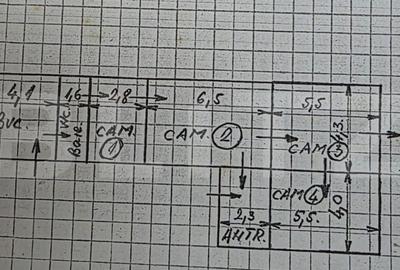 4,1
1,6
2,8
6,5
5,5
Wc.
CAM.
1
CAM.
2
CAM.
3
4,3.
CAM
4
4,0
2,3
5,5.
АНТR.